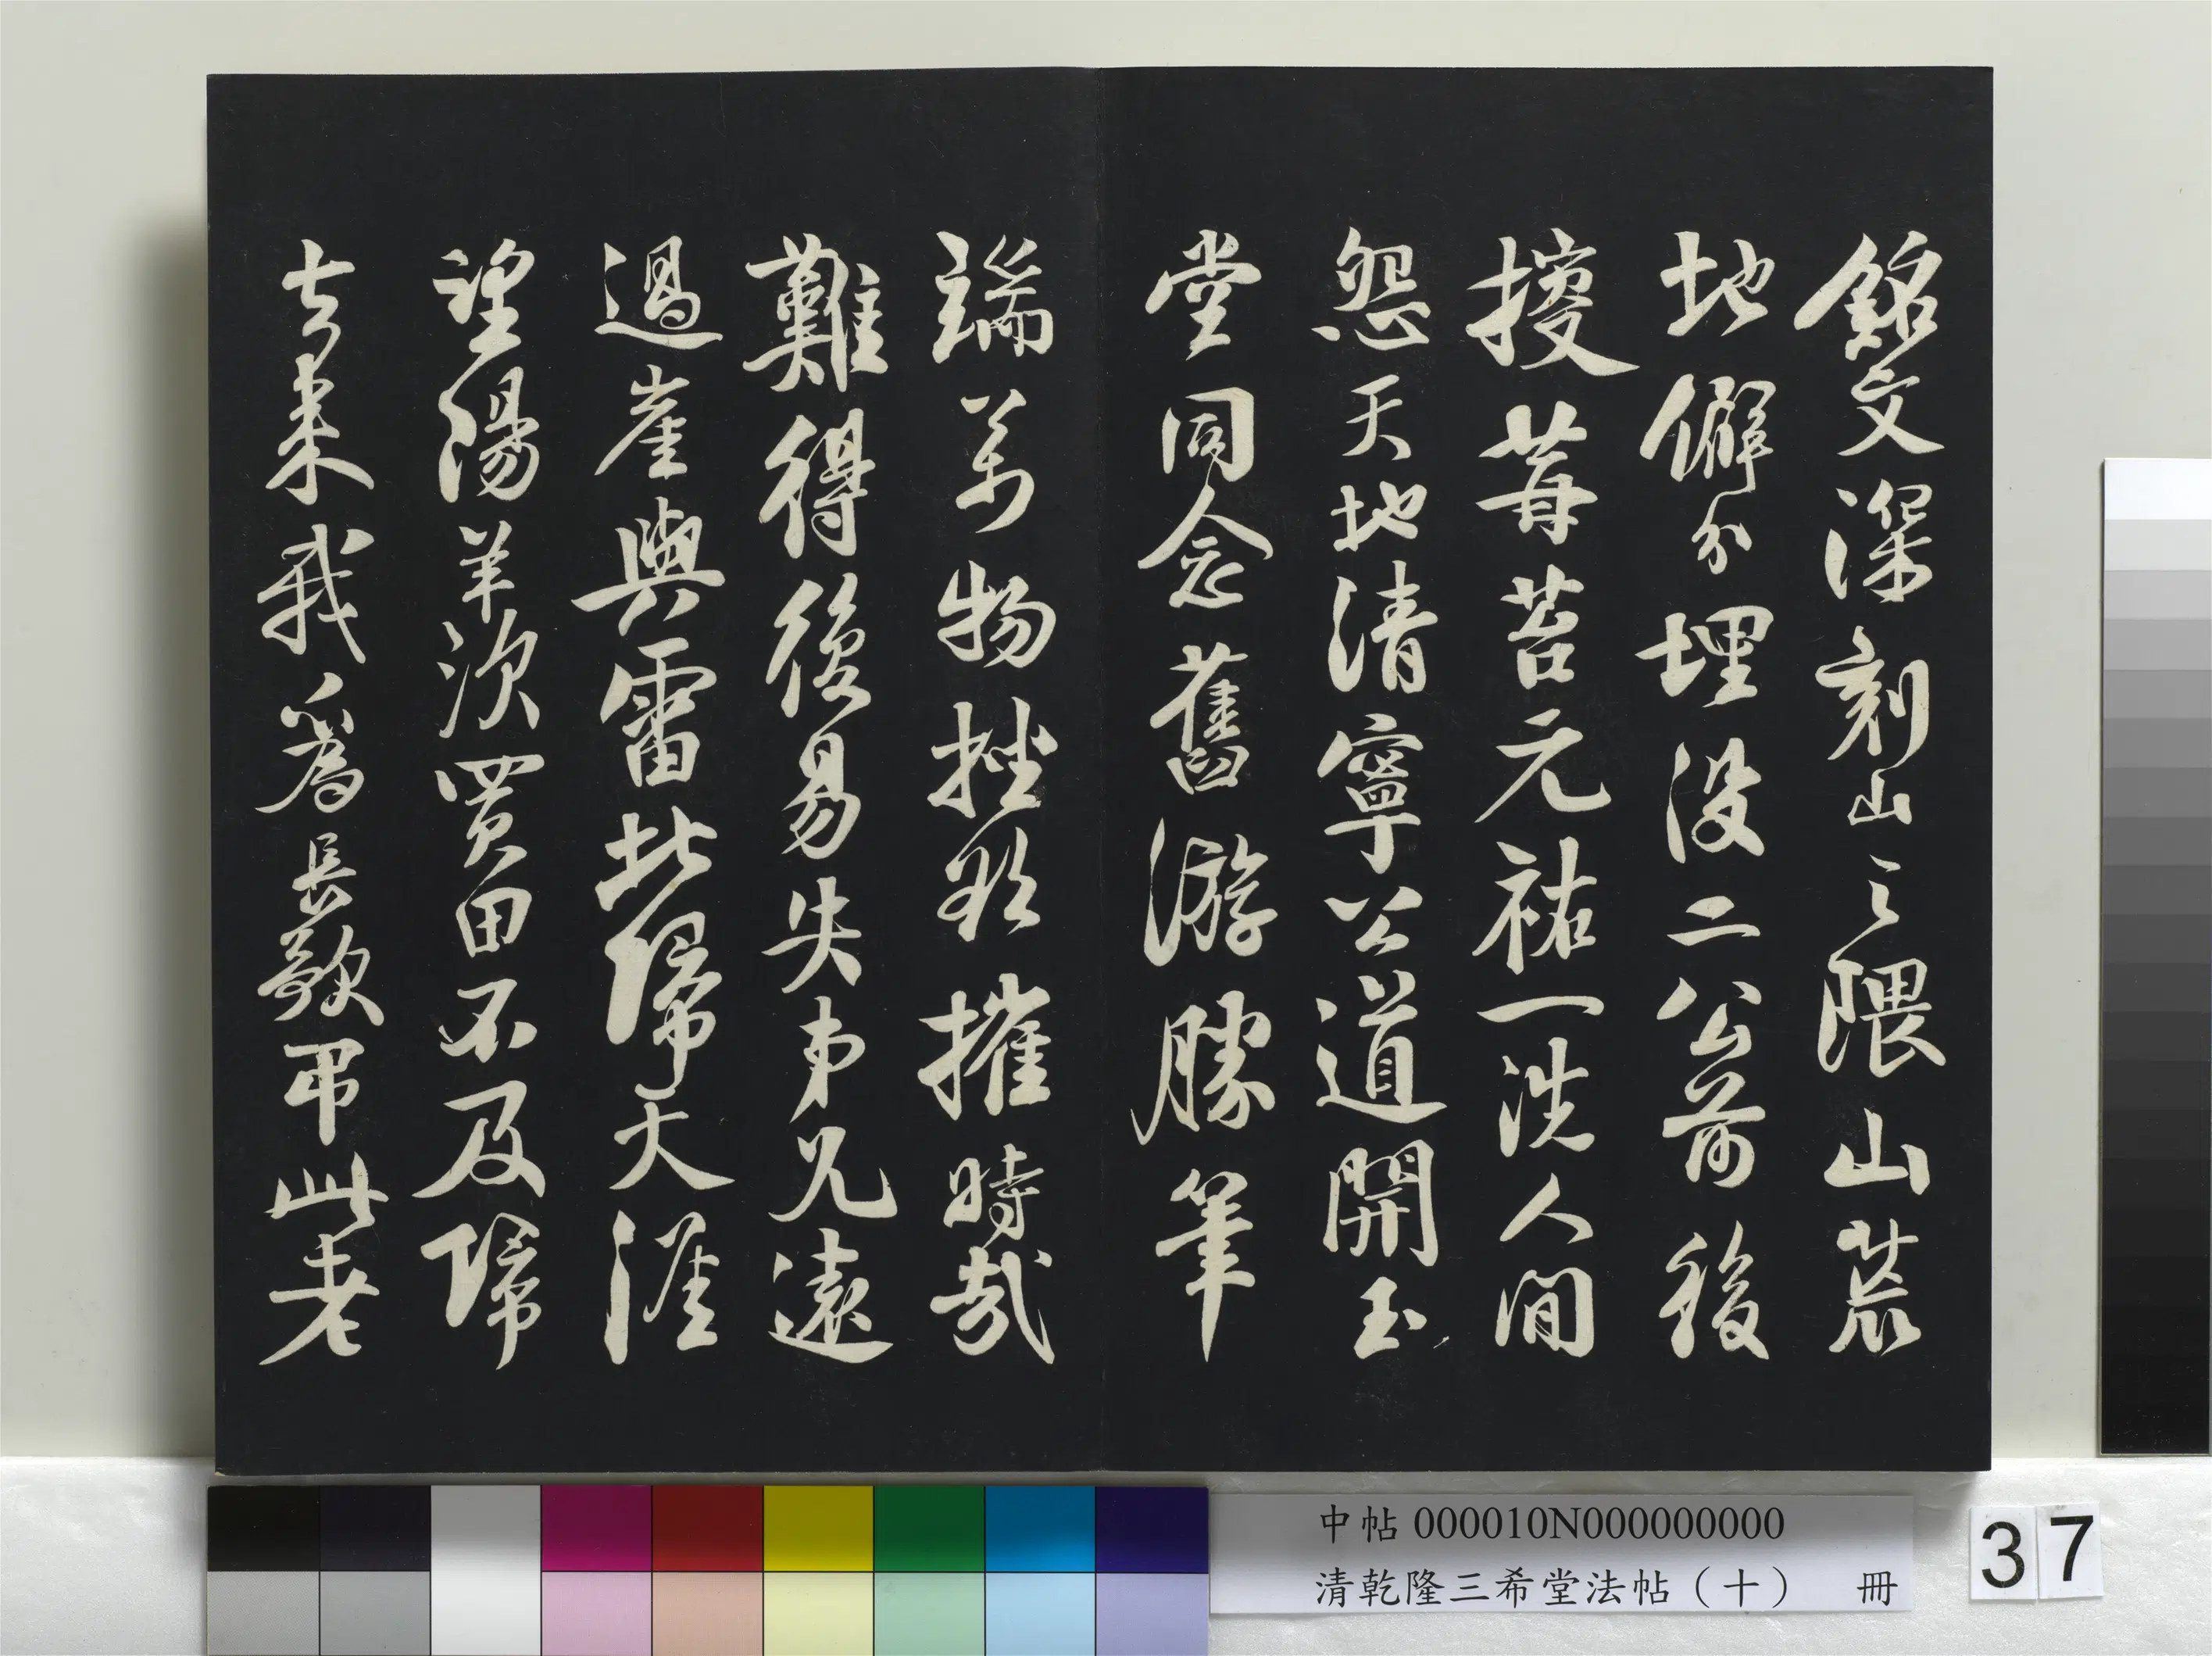 銘文深刻山之隈山荒
地僻分埋没二公前後
擅莓苔元祐一洗人間
怨天地清寧公道開玉
堂同念舊游勝筆
端萬物挫欲摧時哉
難得後易失弟兄遠
過崖與雷北歸天涯
望陽羨次買田不及歸
去来我爲長歌弔此老
中帖 000010N000000000
清乾隆三希堂法帖（十） 冊
37